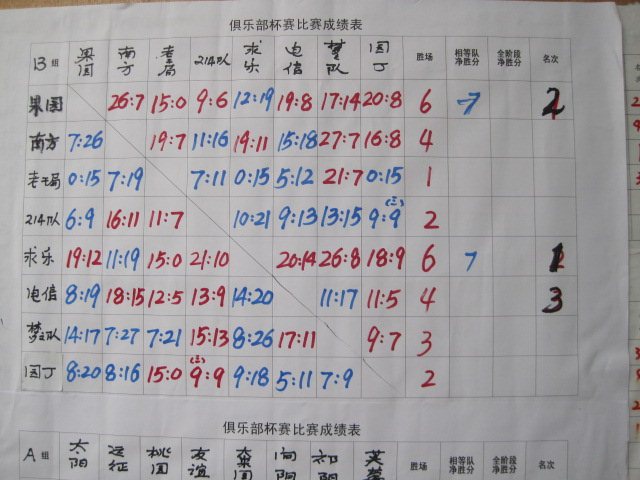 俱乐部杯赛比赛成绩表
B组 果园 南方 老王局 214队 求乐 电信 梦队 园丁 胜场 相等队净胜分 全阶段净胜分 名次
果园 26:7 15:0 9:6 12:19 19:8 17:14 20:8 6 -7 2
南方 7:26 19:7 11:16 19:11 15:18 27:7 16:8 4
老王局 0:15 7:19 7:11 0:15 5:12 21:7 0:15 1
214队 6:9 16:11 11:7 10:21 9:13 13:15 9:9 2
求乐 19:12 11:19 15:0 21:10 20:14 26:8 18:9 6 7 1
电信 8:19 18:15 12:5 13:9 14:20 11:17 11:5 4 3
梦队 14:17 7:27 7:21 15:13 8:26 17:11 9:7 3
园丁 8:20 8:16 15:0 9:9 9:18 5:11 7:9 2
俱乐部杯赛比赛成绩表
A组 太阳 远征 桃园 友谊 向阳 朝阳 芙蓉 胜场 相等队净胜分 全阶段净胜分 名次